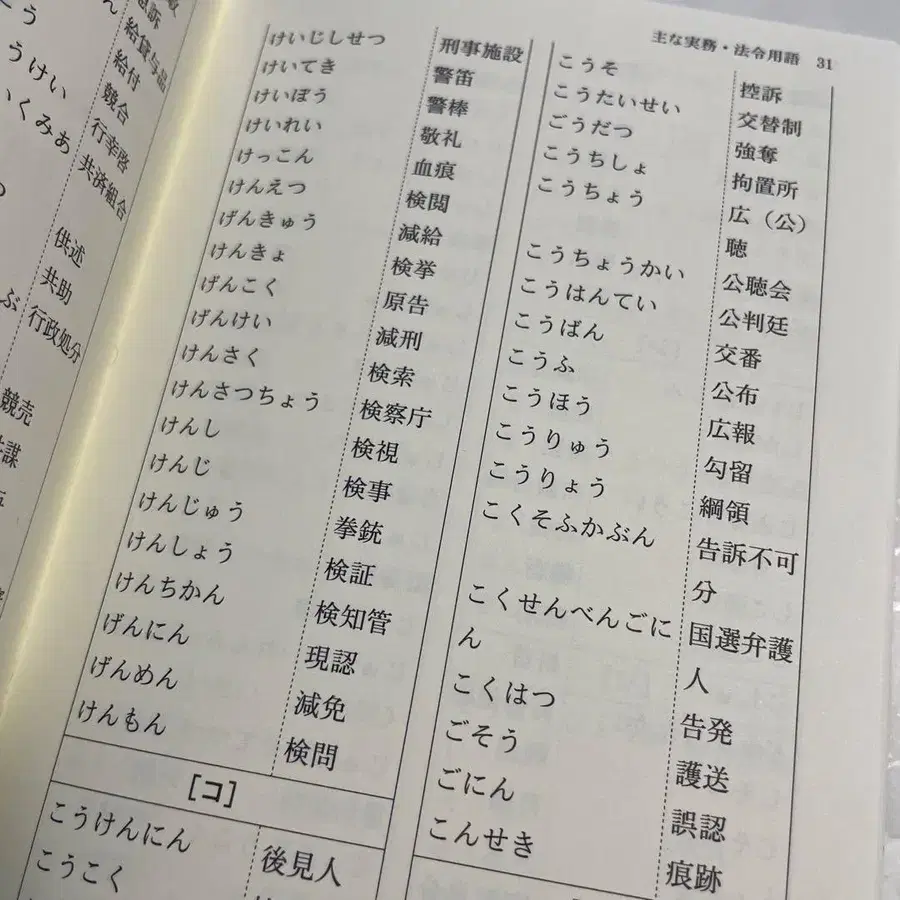 主な実務・法令用語 31
給貸与品
給付
競合
行幸啓
共済組合
供述
共助
行政処分
競売
けいじしせつ 刑事施設
けいてき 警笛
けいぼう 警棒
けいれい 敬礼
けっこん 血痕
けんえつ 検閲
げんきゅう 減給
けんきょ 検挙
げんこく 原告
げんけい 減刑
けんさく 検索
けんさつちょう 検察庁
けんし 検視
けんじ 検事
けんじゅう 拳銃
けんしょう 検証
けんちかん 検知管
げんにん 現認
げんめん 減免
けんもん 検問
［コ］
こうけんにん 後見人
こうこく
こうそ 控訴
こうたいせい 交替制
ごうだつ 強奪
こうちしょ 拘置所
こうちょう 広（公）
聴
こうちょうかい 公聴会
こうはんてい 公判廷
こうばん 交番
こうふ 公布
こうほう 広報
こうりゅう 勾留
こうりょう 綱領
こくそふかぶん 告訴不可
分
こくせんべんごに 国選弁護
ん 人
こくはつ 告発
ごそう 護送
ごにん 誤認
こんせき 痕跡